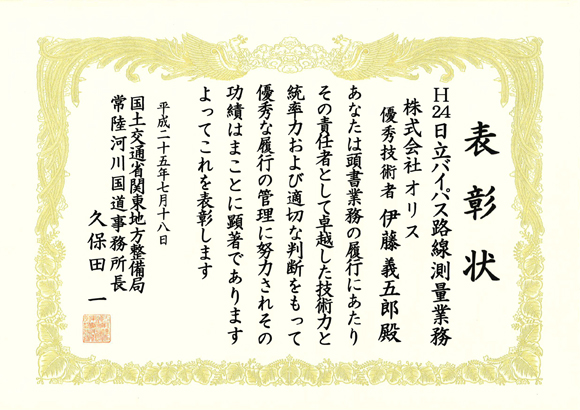 表彰状
H24日立バイパス路線測量業務
株式会社オリス
優秀技術者 伊藤義五郎殿
あなたは頭書業務の履行にあたり
その責任者として卓越した技術力と
統率力および適切な判断をもって
優秀な履行の管理に努力されその
功績はまことに顕著であります
よってこれを表彰します
平成二十五年七月十八日
国土交通省関東地方整備局
常陸河川国道事務所長
久保田一